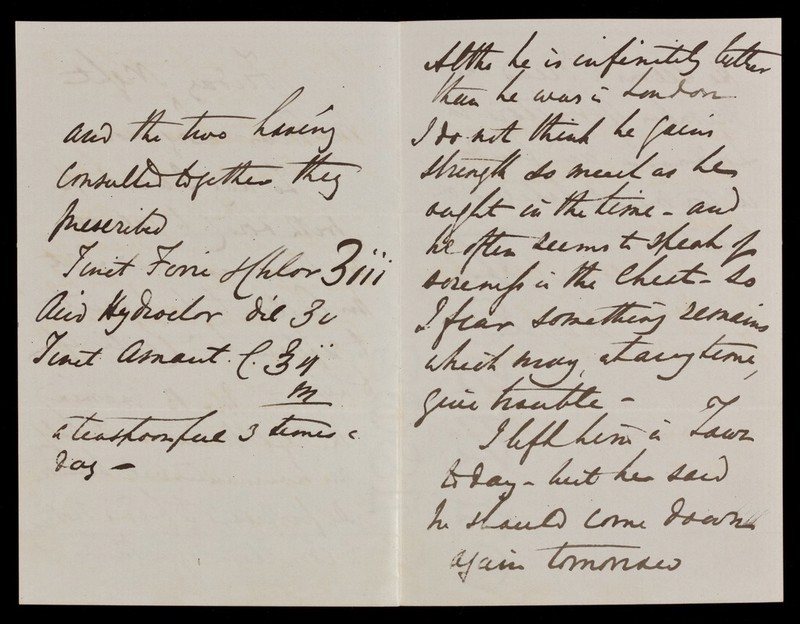 and the two having
consulted together they
prescribed
Tinct Ferri Chlor ʒiii
Acid Hydrochlor dil ʒi
Tinct Aurant. C. ℥ij
M
a teaspoonful 3 times a
day –
Altho he is infinitely better
than he was in London
I do not think he gains
strength so much as he
ought in the time – and
he often seems to speak of
soreness in the Chest – So
I fear something remains
which may, at any time,
give trouble –
I left him in Town
to day – but he said
he should come down
again tomorrow